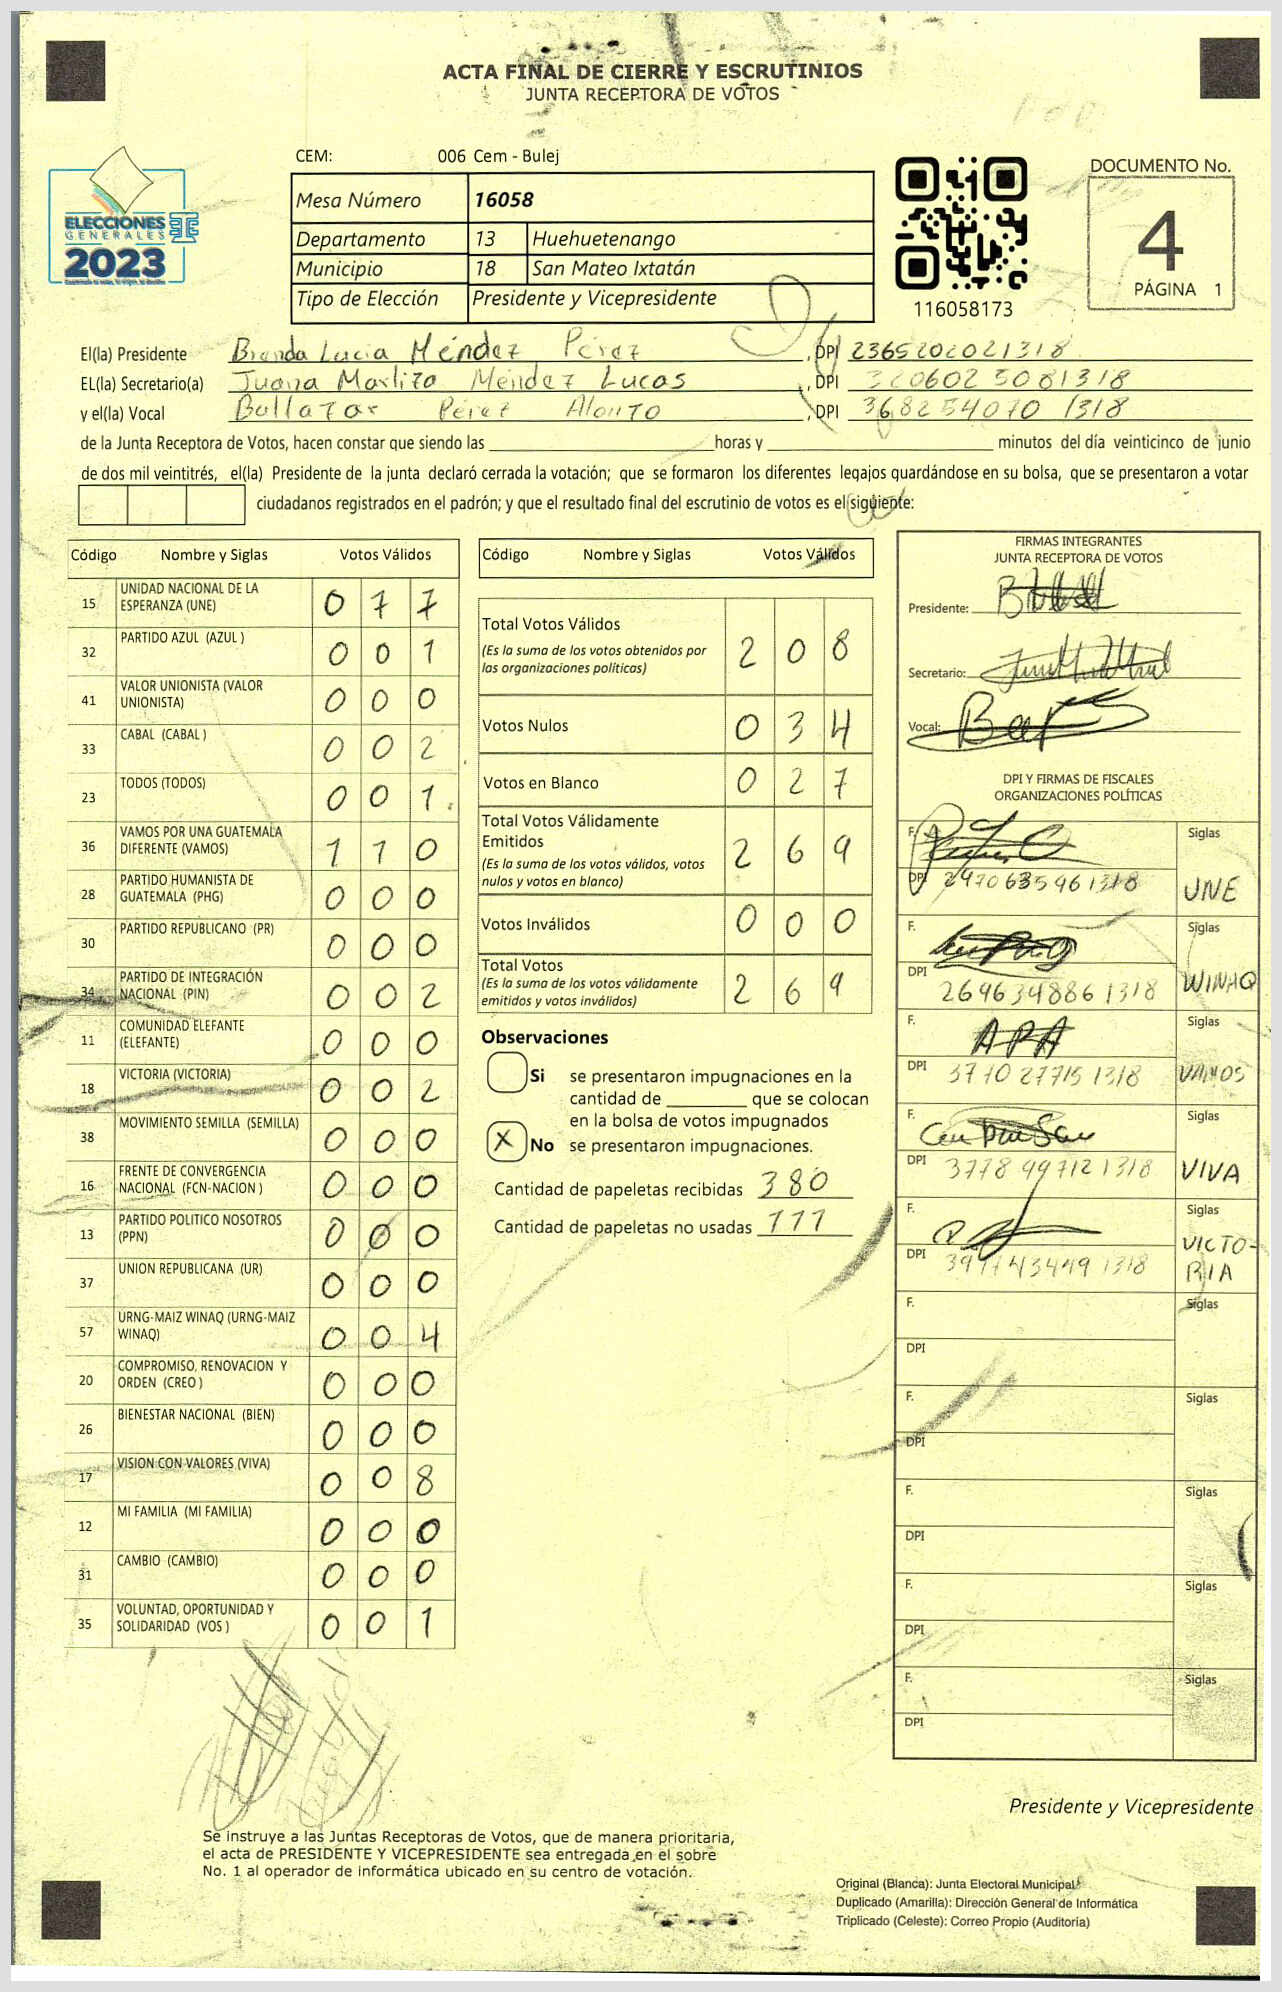 ACTA FINAL DE CIERRE Y ESCRUTINIOS
JUNTA RECEPTORA DE VOTOS
CEM: 006 Cem - Bulej
ELECCIONES
GENERALES
2023
Mesa Número 16058
Departamento 13 Huehuetenango
Municipio 18 San Mateo Ixtatán
Tipo de Elección Presidente y Vicepresidente
116058173
DOCUMENTO No.
4
PÁGINA 1
El(la) Presidente Brenda Lucia Méndez Pérez , DPI 2365202021318
EL(la) Secretario(a) Juana Marliza Méndez Lucas , DPI 3206025081318
y el(la) Vocal Baltazar Pérez Alonzo , DPI 3682540701318
de la Junta Receptora de Votos, hacen constar que siendo las horas y minutos del día veinticinco de junio
de dos mil veintitrés, el(la) Presidente de la junta declaró cerrada la votación; que se formaron los diferentes legajos guardándose en su bolsa, que se presentaron a votar
ciudadanos registrados en el padrón; y que el resultado final del escrutinio de votos es el siguiente:
Código Nombre y Siglas Votos Válidos
15 UNIDAD NACIONAL DE LA ESPERANZA (UNE) 0 7 7
32 PARTIDO AZUL (AZUL ) 0 0 1
41 VALOR UNIONISTA (VALOR UNIONISTA) 0 0 0
33 CABAL (CABAL ) 0 0 2
23 TODOS (TODOS) 0 0 1
36 VAMOS POR UNA GUATEMALA DIFERENTE (VAMOS) 1 1 0
28 PARTIDO HUMANISTA DE GUATEMALA (PHG) 0 0 0
30 PARTIDO REPUBLICANO (PR) 0 0 0
34 PARTIDO DE INTEGRACIÓN NACIONAL (PIN) 0 0 2
11 COMUNIDAD ELEFANTE (ELEFANTE) 0 0 0
18 VICTORIA (VICTORIA) 0 0 2
38 MOVIMIENTO SEMILLA (SEMILLA) 0 0 0
16 FRENTE DE CONVERGENCIA NACIONAL (FCN-NACION ) 0 0 0
13 PARTIDO POLITICO NOSOTROS (PPN) 0 0 0
37 UNION REPUBLICANA (UR) 0 0 0
57 URNG-MAIZ WINAQ (URNG-MAIZ WINAQ) 0 0 4
20 COMPROMISO, RENOVACION Y ORDEN (CREO ) 0 0 0
26 BIENESTAR NACIONAL (BIEN) 0 0 0
17 VISION CON VALORES (VIVA) 0 0 8
12 MI FAMILIA (MI FAMILIA) 0 0 0
31 CAMBIO (CAMBIO) 0 0 0
35 VOLUNTAD, OPORTUNIDAD Y SOLIDARIDAD (VOS ) 0 0 1
Código Nombre y Siglas Votos Válidos
Total Votos Válidos 2 0 8
(Es la suma de los votos obtenidos por
las organizaciones políticas)
Votos Nulos 0 3 4
Votos en Blanco 0 2 7
Total Votos Válidamente
Emitidos 2 6 9
(Es la suma de los votos válidos, votos
nulos y votos en blanco)
Votos Inválidos 0 0 0
Total Votos 2 6 9
(Es la suma de los votos válidamente
emitidos y votos inválidos)
Observaciones
Si se presentaron impugnaciones en la
cantidad de que se colocan
en la bolsa de votos impugnados
X No se presentaron impugnaciones.
Cantidad de papeletas recibidas 380
Cantidad de papeletas no usadas 111
FIRMAS INTEGRANTES
JUNTA RECEPTORA DE VOTOS
Presidente:
Secretario:
Vocal:
DPI Y FIRMAS DE FISCALES
ORGANIZACIONES POLÍTICAS
F. Siglas
DPI 2470635961318 UNE
F. Siglas
DPI 2696348861318 WINAQ
F. APA Siglas
DPI 3710277151318 VAMOS
F. Siglas
DPI 3778997121318 VIVA
F. Siglas
DPI 1318 VICTO-
RIA
F. Siglas
DPI
F. Siglas
DPI
F. Siglas
DPI
F. Siglas
DPI
F. Siglas
DPI
Presidente y Vicepresidente
Se instruye a las Juntas Receptoras de Votos, que de manera prioritaria,
el acta de PRESIDENTE Y VICEPRESIDENTE sea entregada en el sobre
No. 1 al operador de informática ubicado en su centro de votación.
Original (Blanca): Junta Electoral Municipal
Duplicado (Amarilla): Dirección General de Informática
Triplicado (Celeste): Correo Propio (Auditoría)